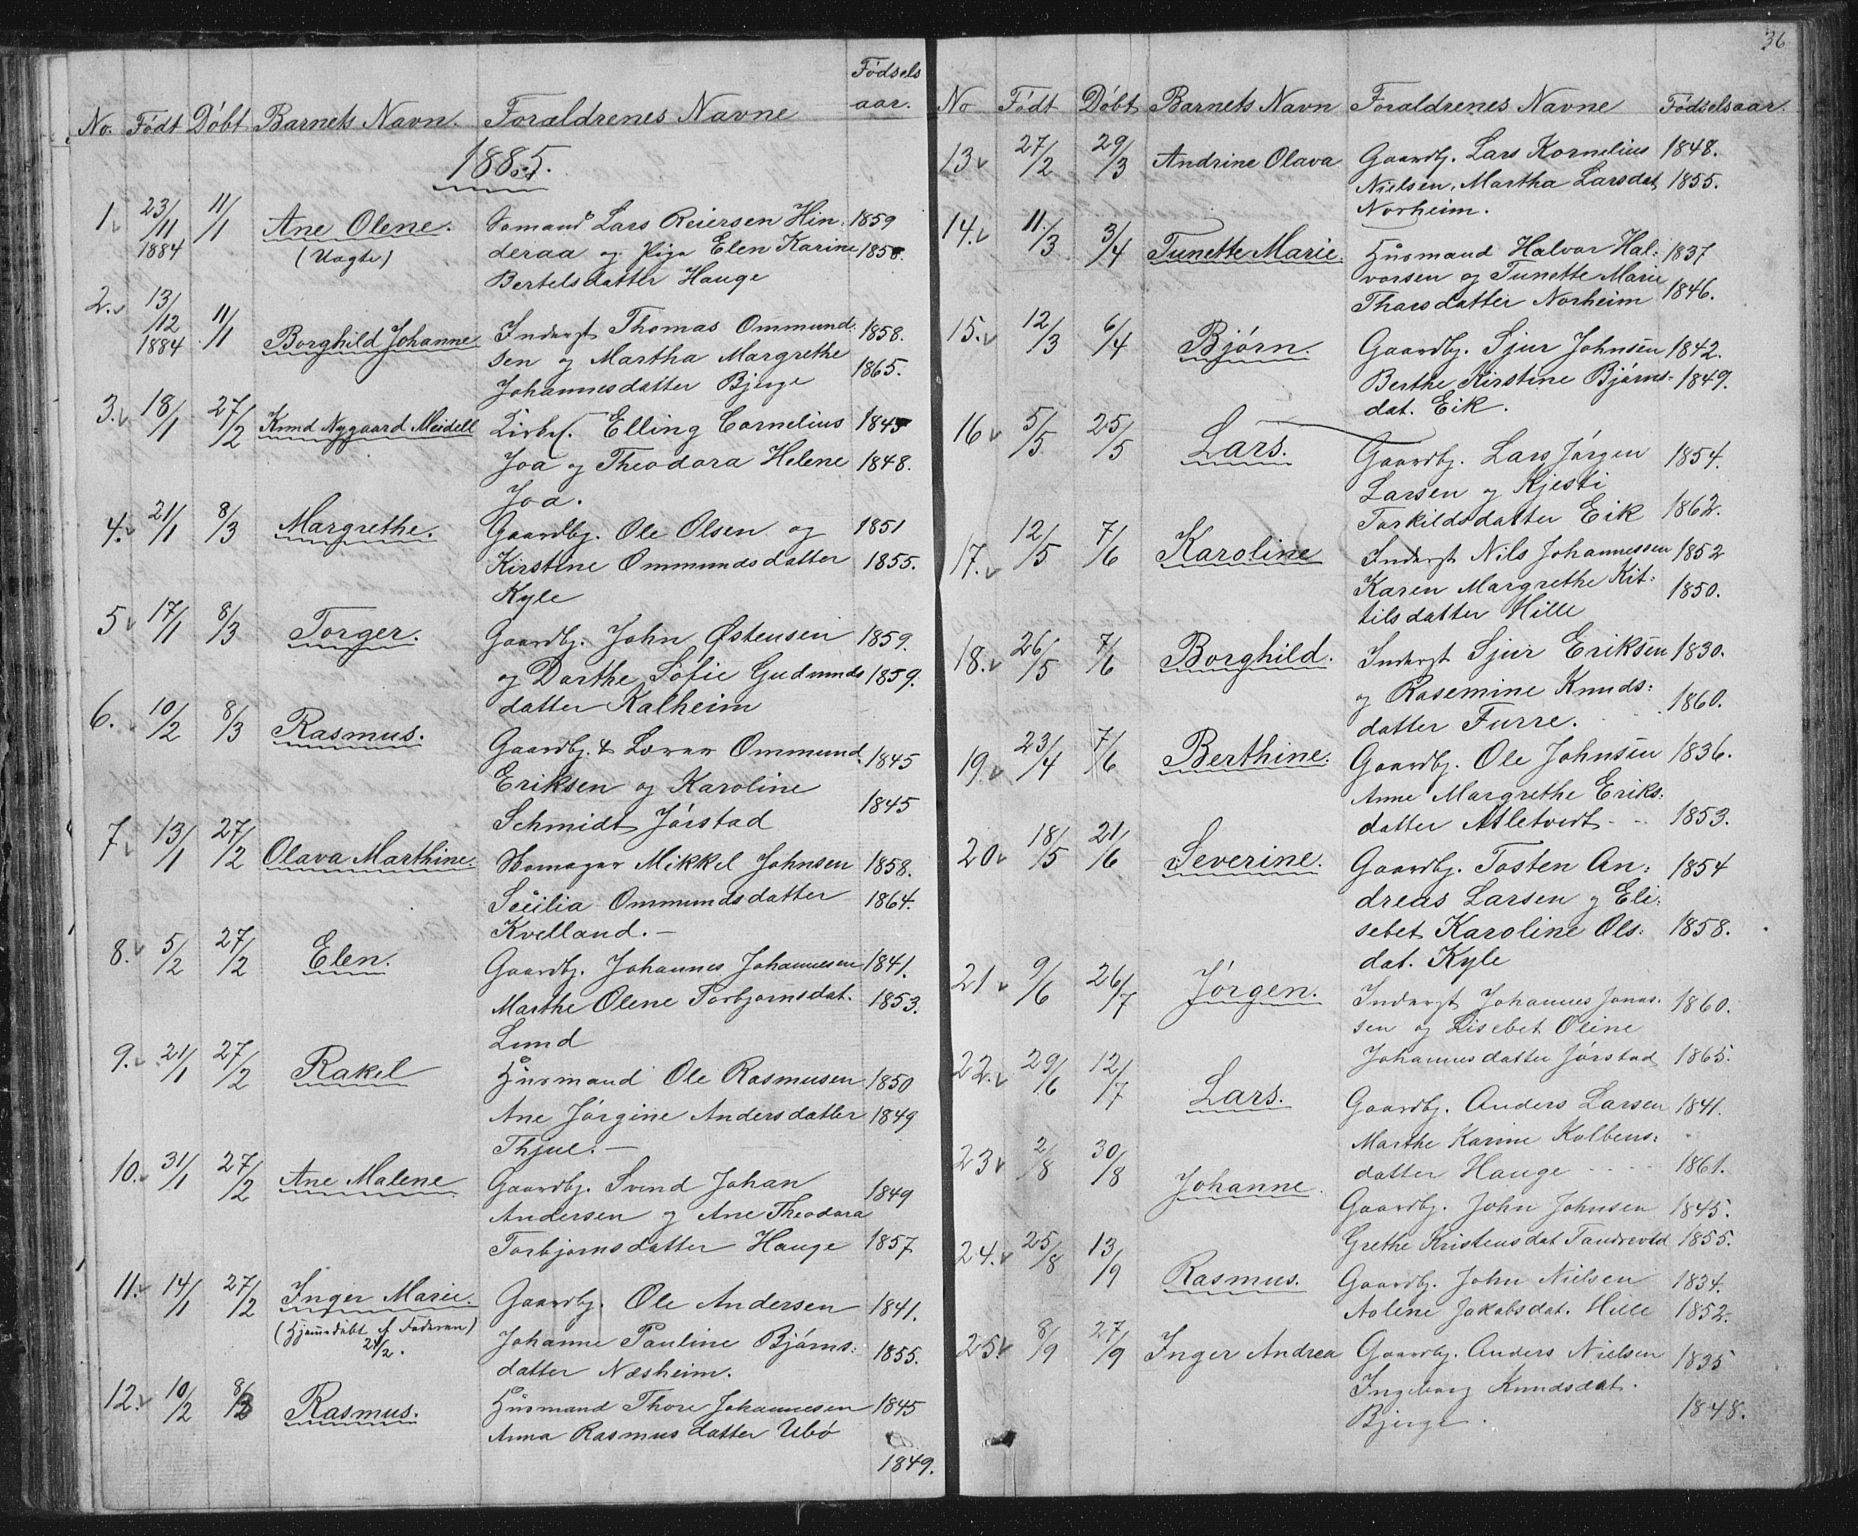 No. Født Døbt Barnets Navn. Forældrenes Navne Fødselsaar.
1885.
1. 23/11 1884 11/1 Ane Olene. Sømand Lars Reiersen Hin 1859
(Uægte) deraa og Pige Elen Karine 1858.
Bertelsdatter Hauge
2. 13/12 1884 11/1 Borghild Johanne Inderst Thomas Ommund. 1858.
sen og Martha Margrethe 1865.
Johannesdatter Bjerge
3. 18/1 27/2 Knud Nygaard Meidell Kirkes. Elling Cornelius 1845
Joa og Theodora Helene 1848.
Joa.
4. 21/1 8/3 Margrethe. Gaardbj. Ole Olsen og 1851
Kirstine Ommundsdatter 1855.
Kyle
5 17/1 8/3 Torger. Gaardbj. John Østensen 1859.
og Dorthe Sofie Gudmunds 1859.
datter Kalheim
6. 10/2 8/3 Rasmus. Gaardbj. & Lærer Ommund. 1845
Eriksen og Karoline
Schmidt Jørstad 1845
7. 13/1 27/2 Olava Marthine. Mikkel Johnsen 1858.
Sesilia Ommundsdatter 1864.
Kvelland. —
8. 5/2 27/2 Elen. Gaardbj. Johannes Johannesen 1841.
Marthe Olene Torbjørnsdat. 1853.
Lund
9. 21/1 27/2 Rakel Husmand Ole Rasmusen 1850
Ane Jørgine Andersdatter 1849
Thjul. —
10. 31/1 27/2 Ane Malene Gaardbj. Svend Johan 1849
Andersen og Ane Theodora
Torbjørnsdatter Hauge 1857
11. 14/1 27/2 Inger Marie. Gaardbj. Ole Andersen 1841.
(Hjemmedøbt af Faderen) Johanne Pauline Bjørns: 1855.
datter Næsheim.
12. 10/2 8/3 Rasmus. Husmand Thore Johannesen 1845
Anna Rasmusdatter Ubø
1849.
36
No Født Døbt Barnets Navn Forældrenes Navne Fødselsaar.
13. 27/2 29/3 Andrine Olava Gaardbj. Lars Kornelius 1848.
Nielsen, Martha Larsdat 1855.
Norheim.
14. 11/3 3/4 Tunette Marie. Husmand Halvor Hal: 1837
vorsen og Tunette Marie
Thorsdatter Norheim 1846.
15. 12/3 6/4 Bjørn. Gaardbj. Sjur Johnsen 1842.
Berthe Kirstine Bjørns: 1849.
dat. Eik.
16 5/5 25/5 Lars. Gaardbj. Lars Jørgen 1854.
Larsen og Kjesti
Torkildsdatter Eik 1862.
17. 12/5 7/6 Karoline Inderst Nils Johannessen 1852
Karen Margrethe Kit: 1850.
tilsdatter Hille
18. 26/5 7/6 Borghild. Inderst Sjur Eriksen 1830.
og Rasemine Knuds: 1860.
datter Furre.
19. 23/4 7/6 Berthine. Gaardbj. Ole Johnsen 1836.
Anne Margrethe Eriks:
datter Asletveit 1853.
20. 18/5 21/6 Severine. Gaardbj. Tosten An: 1854
dreas Larsen og Eli:
sebet Karoline Ols: 1858.
dat. Kyle
21 9/6 26/7 Jørgen. Inderst Johannes Jonas: 1860.
sen og Lisebet Oline
Johannesdatter Jørstad 1865.
22. 29/6 12/7 Lars. Gaardbj. Anders Larsen 1841.
Marthe Karine Kolbens:
datter Hauge 1861.
23 2/8 30/8 Johanne. Gaardbj. John Johnsen 1845.
Grethe Kristensdat Tandrevold 1855.
24. 25/8 13/9 Rasmus. Gaardbj. John Nielsen 1834.
Aolene Jakobsdat. Hille 1852.
25. 8/9 27/9 Inger Andrea Gaardbj. Anders Nielsen 1835
Ingeborg Knudsdat.
Bjerge. 1848.